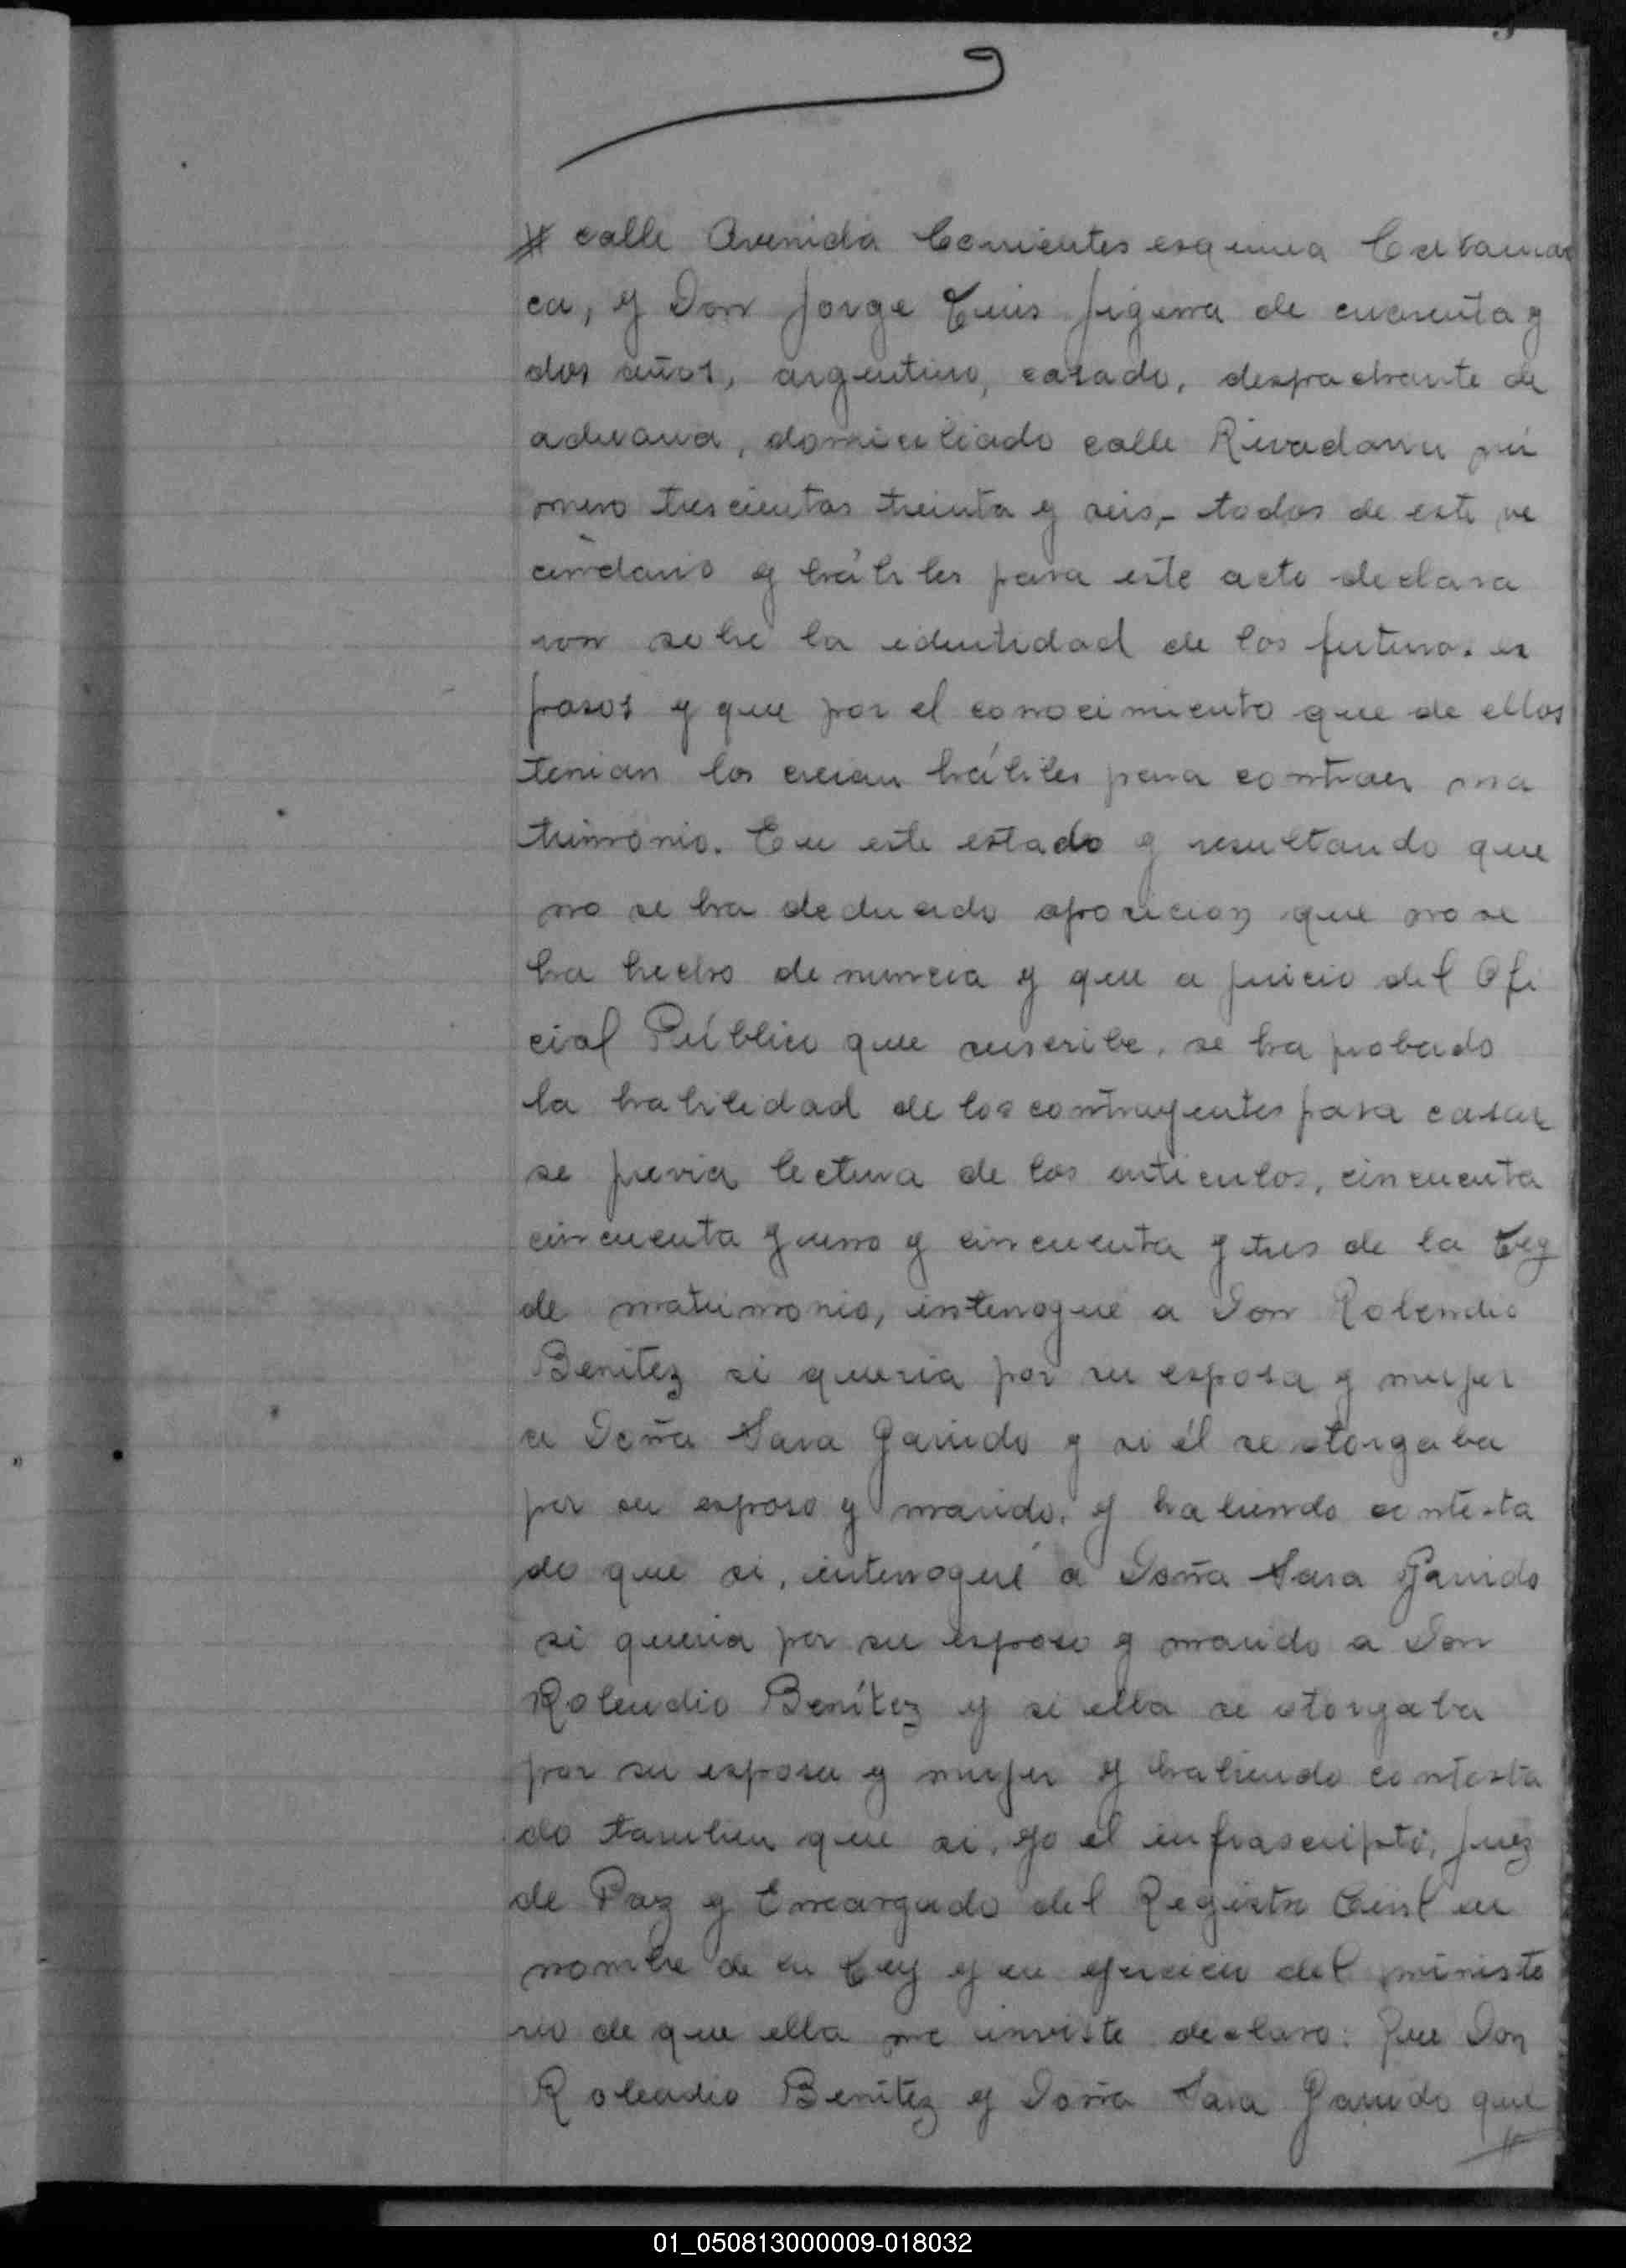 # calle Avenida Corrientes esquina Catamar
ca, y Don Jorge Luis Figerra de cuarenta y
dos años, argentino, casado, despachante de
aduana, domiciliado calle Rivadavia nú
mero trescientos treinta y seis,- todos de este ve
cindario y hábiles para este acto declara
ron sobre la identidad de los futuros es
posos y que por el conocimiento que de ellos
tenian los creian hábiles para contraer ma
trimonio. En este estado y resultando que
no se ha deducido oposicion que no se
ha hecho denuncia y que a juicio del Ofi
cial Público que suscribe, se ha probado
la habilidad de los contrayentes para casar
se previa lectura de los articulos, cincuenta
cincuenta y uno y cincuenta y tres de la Ley
de matrimonio, interrogué a Don Rolendio
Benitez si queria por su esposa y mujer
a Doña Sara Garrido y si él se otorgaba
por su esposo y marido, y habiendo contesta
do que si, interrogué a Doña Sara Garrido
si queria por su esposo y marido a Don
Rolendio Benítez y si ella se otorgaba
por su esposa y mujer y habiendo contesta
do tambien que si, yo el infrascripto, Juez
de Paz y Encargado del Registro Civil en
nombre de la Ley y en ejercicio del ministe
rio de que ella me inviste declaro: Que Don
Rolendio Benítez y Doña Sara Garrido que
#
01_050813000009-018032